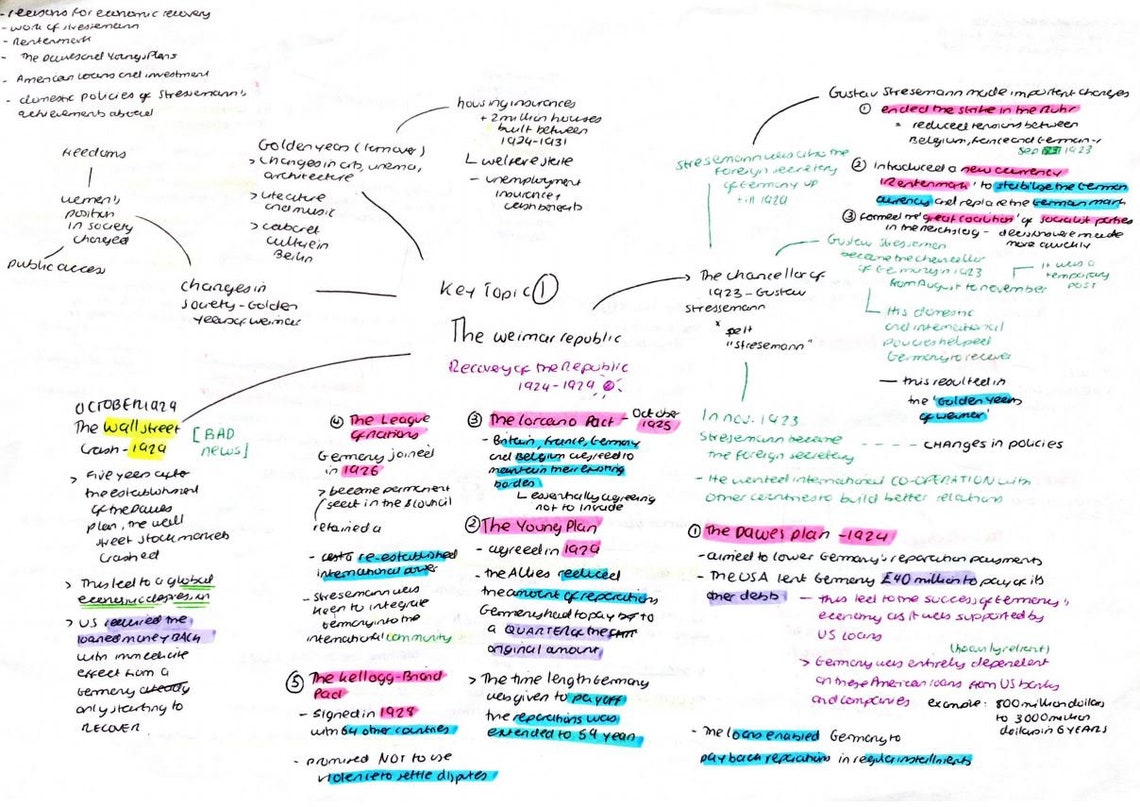 - reasons for economic recovery
- work of stressemann
- Rentenmark
- The Dawes and Youngs Plans
- American loans and investment
- domestic policies of Stressemann's
achievements abroad
Freedoms
women's
position
in society
changed
public access
changes in
society - Golden
years of weimar
Golden years (turnover)
> changes in arts, cinema,
architecture
> literature
and music
> cabaret
culture in
Berlin
housing insurances
+ 2 million houses
built between
1924-1931
welfare state
- unemployment
insurance +
cash benefits
Key Topic ①
The weimar republic
Recovery of the Republic
1924-1929
The chancellor of
1923 - Gustav
Stressemann
* spelt
"Stresemann"
Stresemann was also the
foreign secretary
of Germany up
till 1929
Gustav Stresemann made important changes
① ended the strike in the Ruhr
* reduced tensions between
Belgium, France and Germany
Sep 1923
② introduced a new currency
'Rentenmark' to stabilise the German
currency and replace the German mark
③ formed the 'great coalition' of socialist parties
in the reichstag - decisions were made
more quickly
Gustav Stresemen
became the chancellor
of Germany in 1923
from August to november
it was a
temporary
post
His domestic
and international
policies helped
Germany to recover
- this resulted in
the 'Golden years
of weimer'
In nov. 1923
Stresemann became
the foreign secretary
---- changes in policies
- He wanted international CO-OPERATION with
other countries to build better relations
① The Dawes plan - 1924
- aimed to lower Germany's reparation payments
- The USA lent Germany £40 million to pay of its
other debts
- this led to the success of Germany's
economy as it was supported by
US loans
(heavily reliant)
> Germany was entirely dependent
on these American loans from US banks
and companies
example: 800 million dollars
to 3000 million
dollars in 6 YEARS
- The loans enabled Germany to
pay back reparations in regular installments
③ The Locarno Pact - October
1925
- Britain, France, Germany
and Belgium agreed to
maintain their existing
borders
essentially agreeing
not to invade
② The Young Plan
- agreed in 1929
- the Allies reduced
the amount of reparations
Germany had to pay to
a QUARTER of the
original amount
> The time length Germany
was given to pay off
the reparations was
extended to 59 years
④ The League
of nations
Germany joined
in 1926
> become permanent
seat in the council
retained a
- re-established
international power
- Stresemann was
keen to integrate
Germany into the
international community
⑤ The Kellogg-Briand
Pact
- signed in 1928
with 64 other countries
- promised NOT to use
violence to settle disputes
OCTOBER 1929
The Wall street
Crash - 1929
[BAD
news]
> Five years after
the establishment
of the Dawes
plan, the wall
street stock markets
crashed
> This led to a global
economic depression
> US required the
loaned money BACK
with immediate
effect from a
Germany already
only starting to
RECOVER